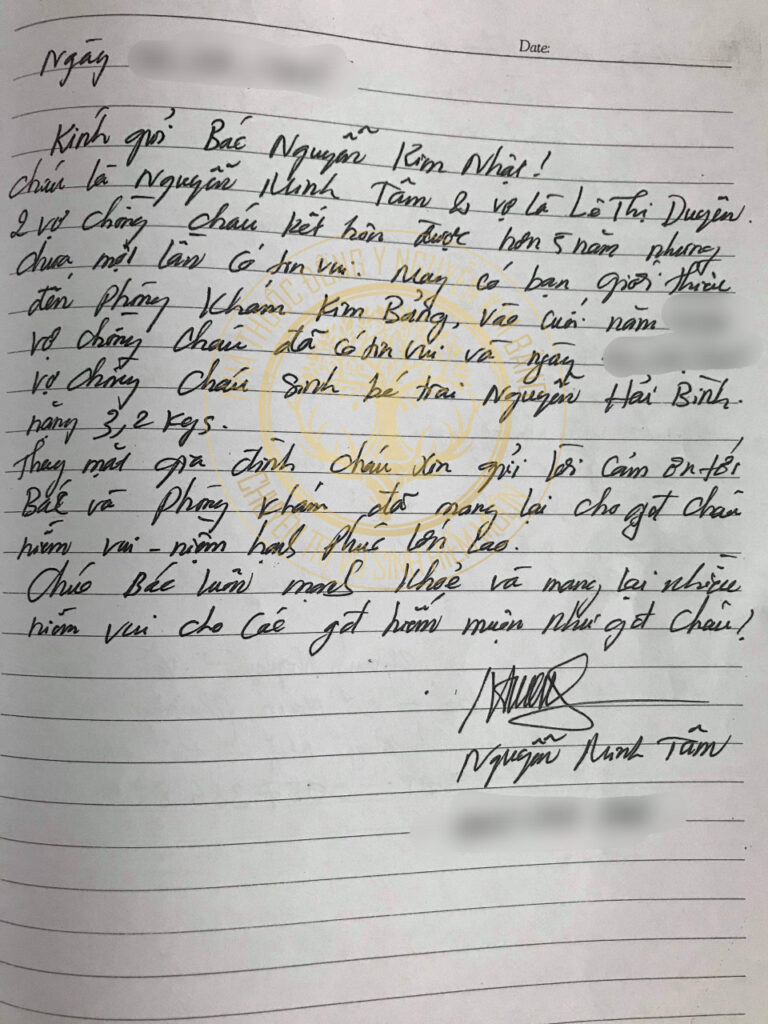 Date:
Ngày
Kính gửi Bác Nguyễn Kim Nhật!
cháu là Nguyễn Minh Tâm & vợ là Lê Thị Duyên.
2 vợ chồng cháu kết hôn được hơn 5 năm nhưng
chưa một lần có tin vui. May có bạn giới thiệu
đến phòng khám Kim Bảng, vào cuối năm
vợ chồng cháu đã có tin vui và ngày
vợ chồng cháu sinh bé trai Nguyễn Hải Bình.
nặng 3,2 kgs.
Thay mặt gia đình cháu xin gửi lời cảm ơn tới
Bác và phòng khám đã mang lại cho gđ cháu
niềm vui - niềm hạnh phúc lớn lao.
Chúc Bác luôn mạnh khoẻ và mang lại nhiều
niềm vui cho các gđ hiếm muộn như gđ cháu!
Nguyễn Minh Tâm